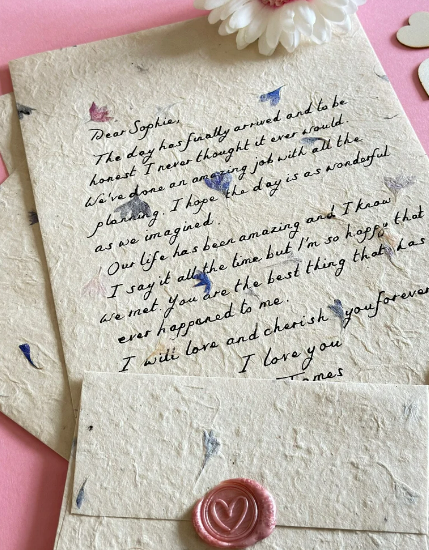 Dear Sophie,
The day has finally arrived and to be
honest I never thought it ever would.
We've done an amazing job with all the
planning. I hope the day is as wonderful
as we imagined.
Our life has been amazing and I know
I say it all the time but I'm so happy that
we met. You are the best thing that has
ever happened to me.
I will love and cherish you forever
I love you
James